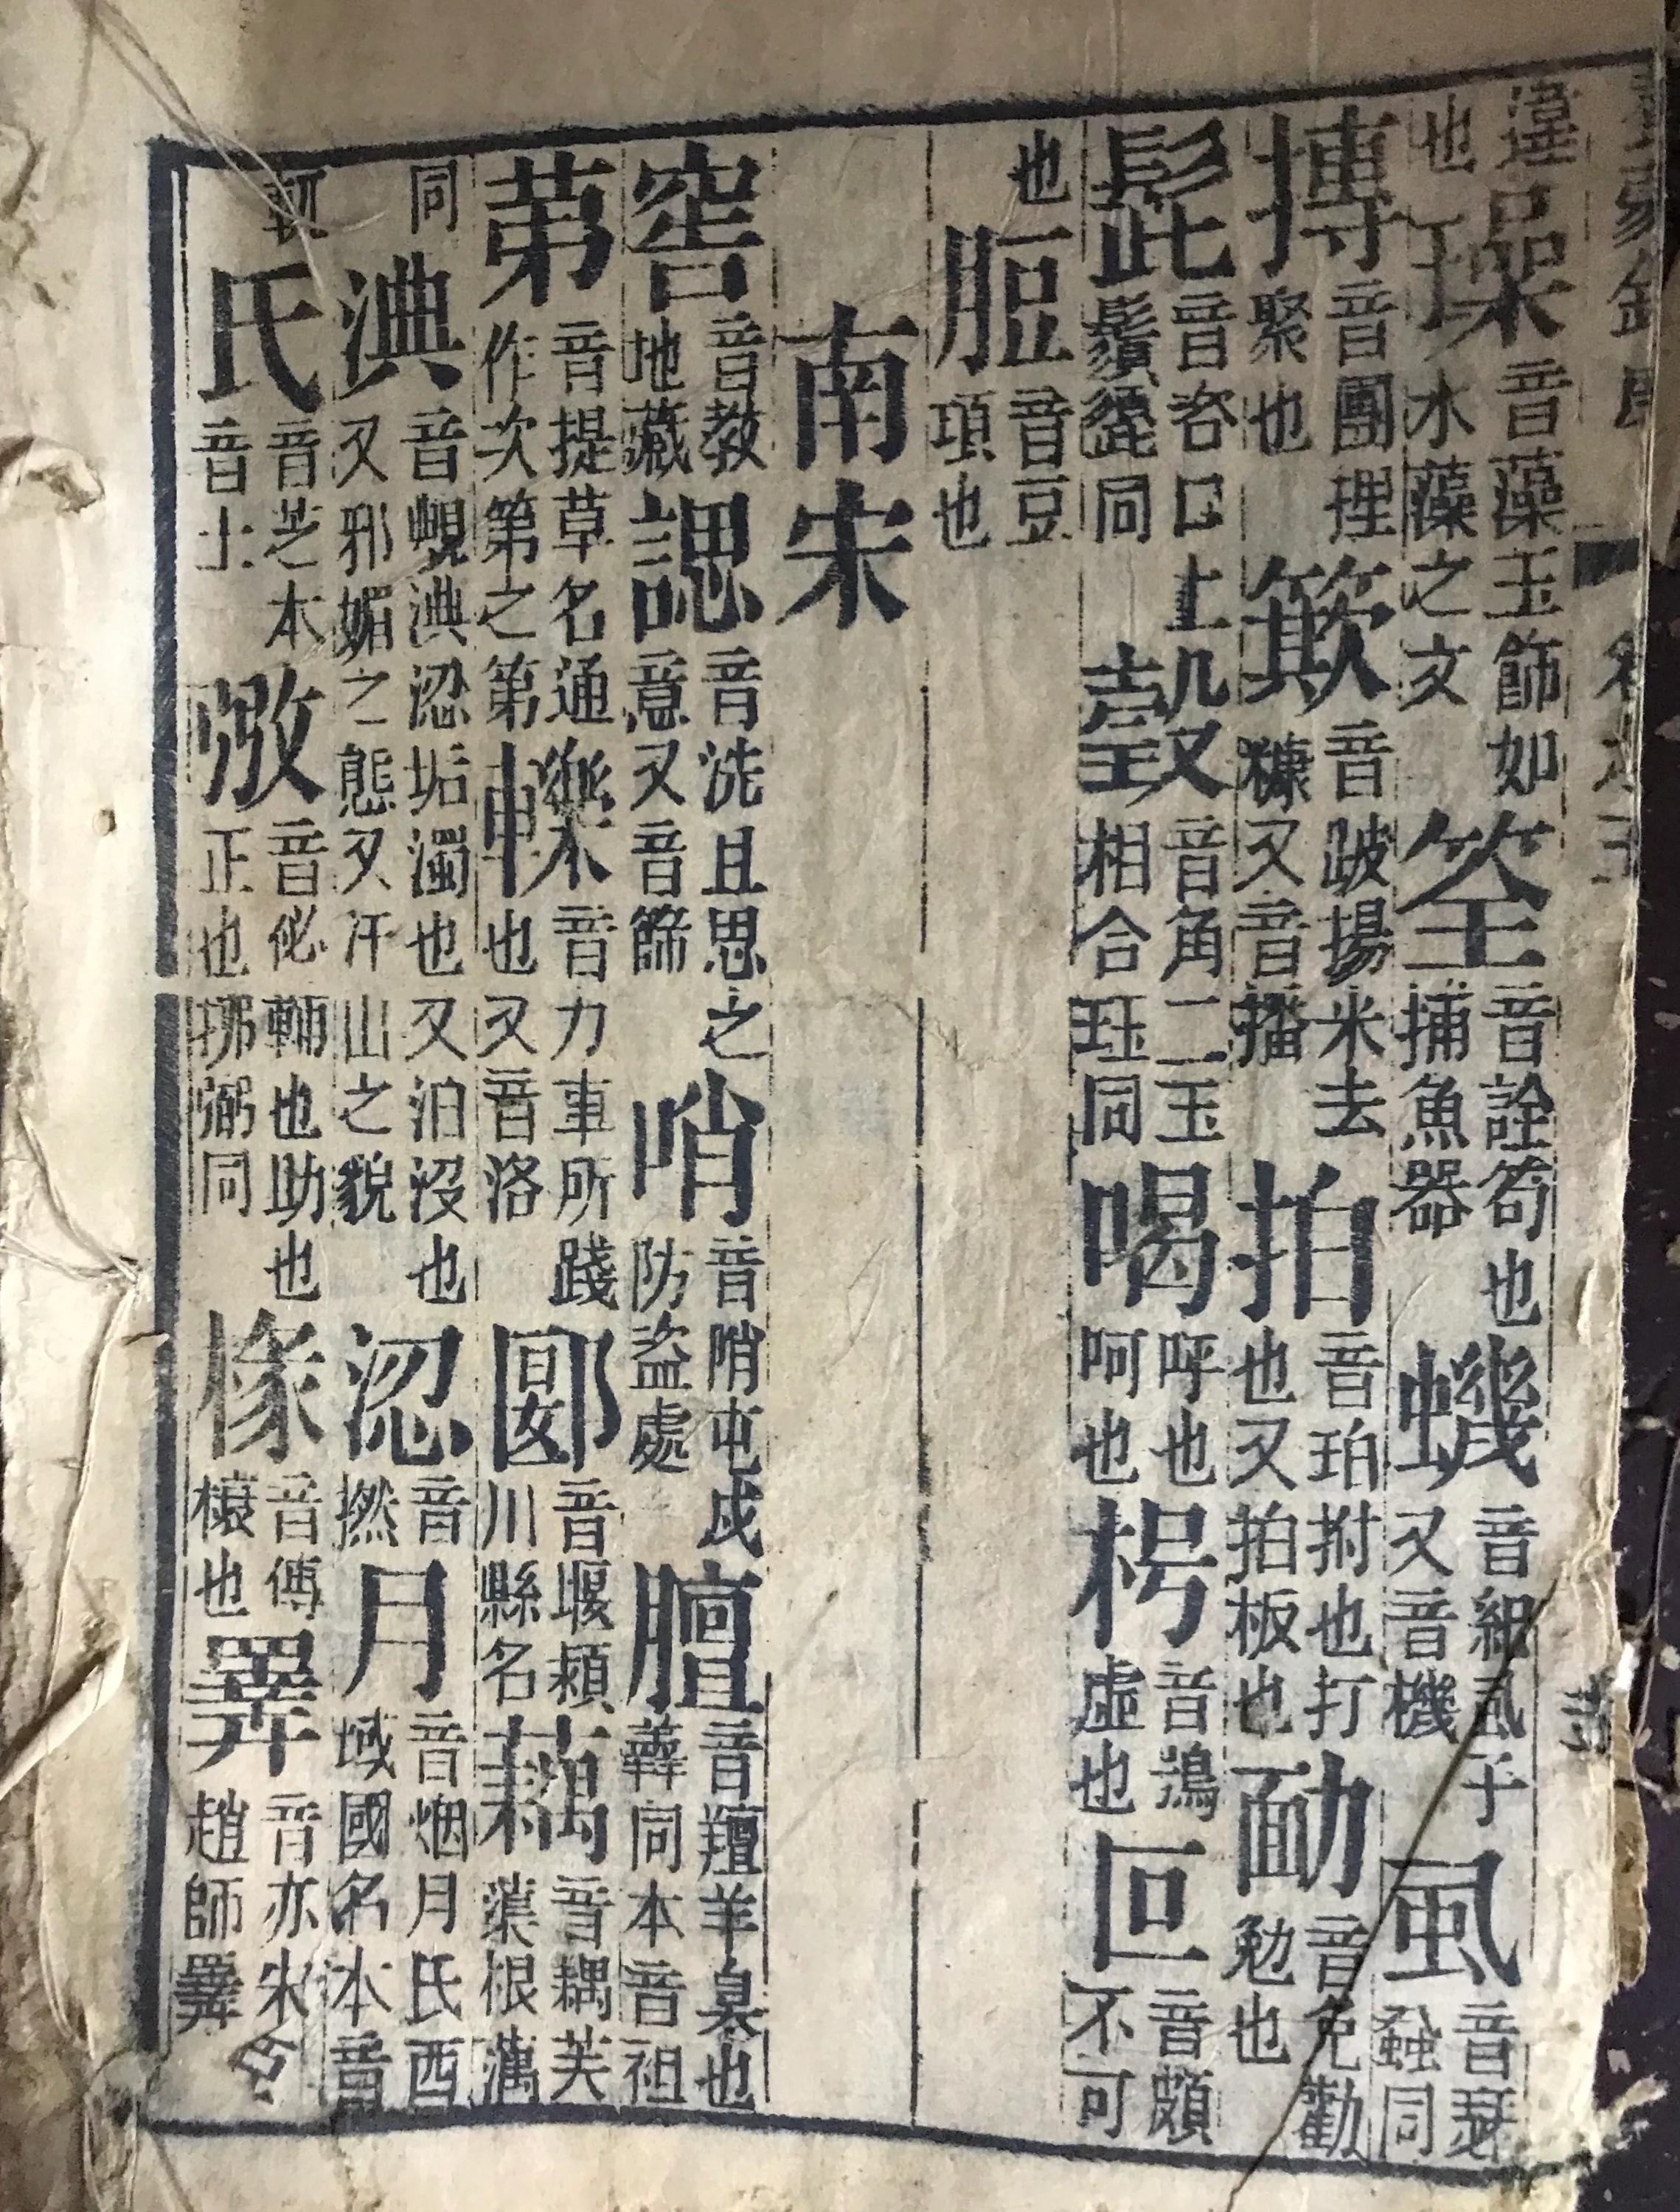 違也璪音藻玉飾如水藻之文筌音詮笱也捕魚器蟣音紀虱子又音機虱音瑟蝨同
摶音團捏聚也簸音跛揚米去糠又音播拍音珀拊也打也又拍板也勔音免勸勉也
髭音咨口上鬚頾同瑴音角二玉相合珏同喝呼也呵也枵音鴞虛也叵音頗不可
也脰音豆項也
南宋
窖音教地藏諰音洗且思之意又音篩哨音哨屯戍防盜處膻音羶羊臭也羴同本音袒
苐音提草名通作次第之第轢音力車所踐也又音洛郾音堰潁川縣名藕音耦芙蕖根蕅
同淟音蜆淟涊垢濁也又泊沒也又邪媚之態又汗出之貌涊音撚月音烟月氏西域國名本音
氏音芝本音士弼音佖輔也助也正也同椽音傳榱也睪音亦朱趙師